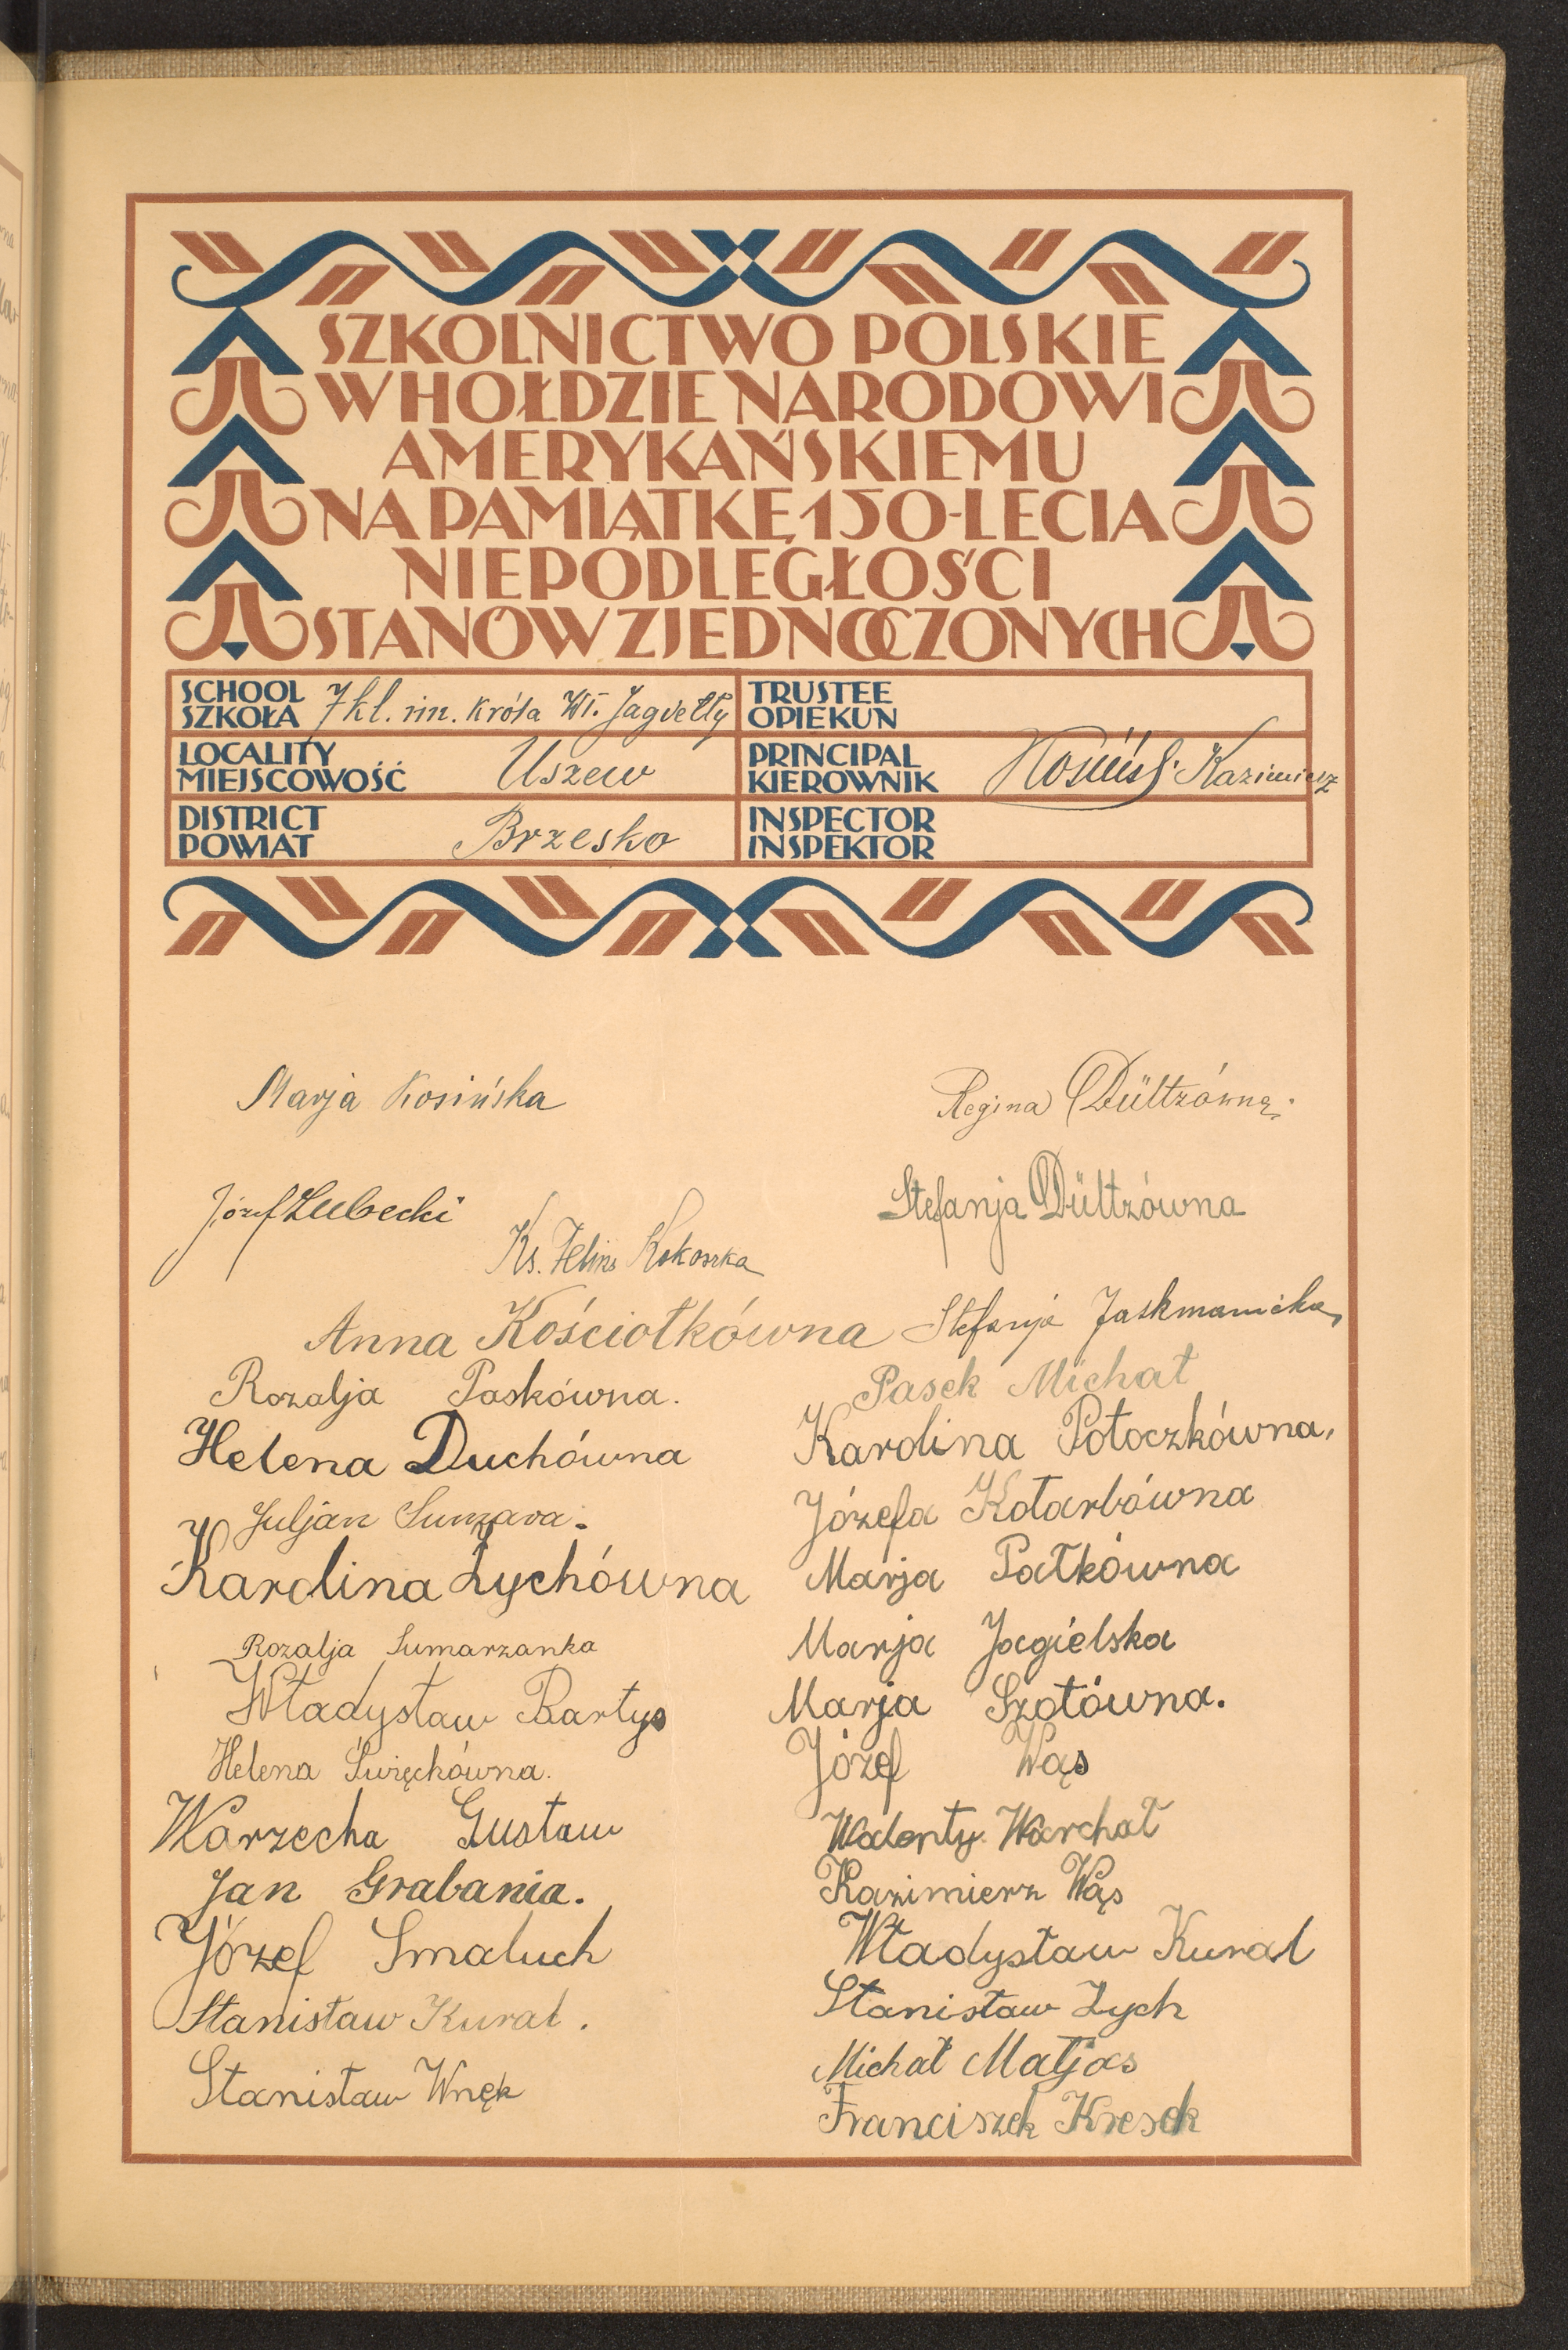 SZKOLNICTWO POLSKIE
W HOŁDZIE NARODOWI
AMERYKAŃSKIEMU
NA PAMIĄTKĘ 150-LECIA
NIEPODLEGŁOŚCI
STANÓW ZJEDNOCZONYCH
SCHOOL
SZKOŁA
7 kl. im. Króla Wł. Jagiełły
TRUSTEE
OPIEKUN
LOCALITY
MIEJSCOWOŚĆ
Uszew
PRINCIPAL
KIEROWNIK
Kazimierz
DISTRICT
POWIAT
Brzesko
INSPECTOR
INSPEKTOR
Marja Kosińska
Regina Dültzówna.
Józef Lubecki
Stefanja Dültzówna
Ks. Feliks Kokoszka
Anna Kościołkówna
Stefanja
Rozalja Paskówna.
Pasek Michał
Helena Duchówna
Karolina Potoczkówna,
Juljan
Józefa Kotarbówna
Karolina Zychówna
Marja Pałkówna
Rozalja Sumarzanka
Marja Jagielska
Władysław Bartys
Marja Szotówna.
Helena Święchówna.
Józef Wąs
Warzecha Gustaw
Walenty Warchał
Jan Grabania.
Kazimierz Wąs
Józef Smaluch
Władysław Kural
Stanisław Kural.
Stanisław Zych
Stanisław Wnęk
Michał Matjas
Franciszek Kresek